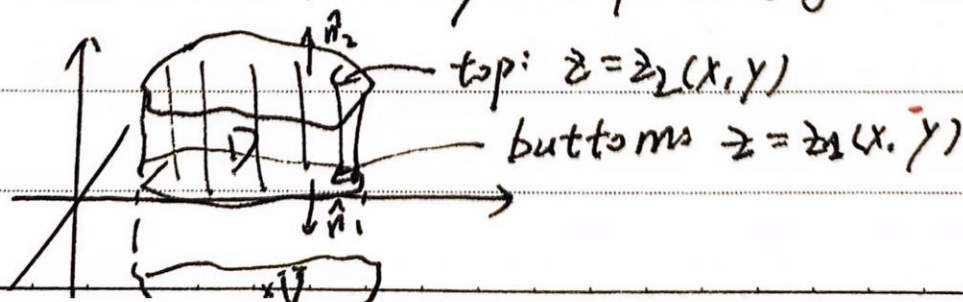 n̂₂
top: z = z₂(x, y)
D
buttoms z = z₁(x, y)
n̂₁
U